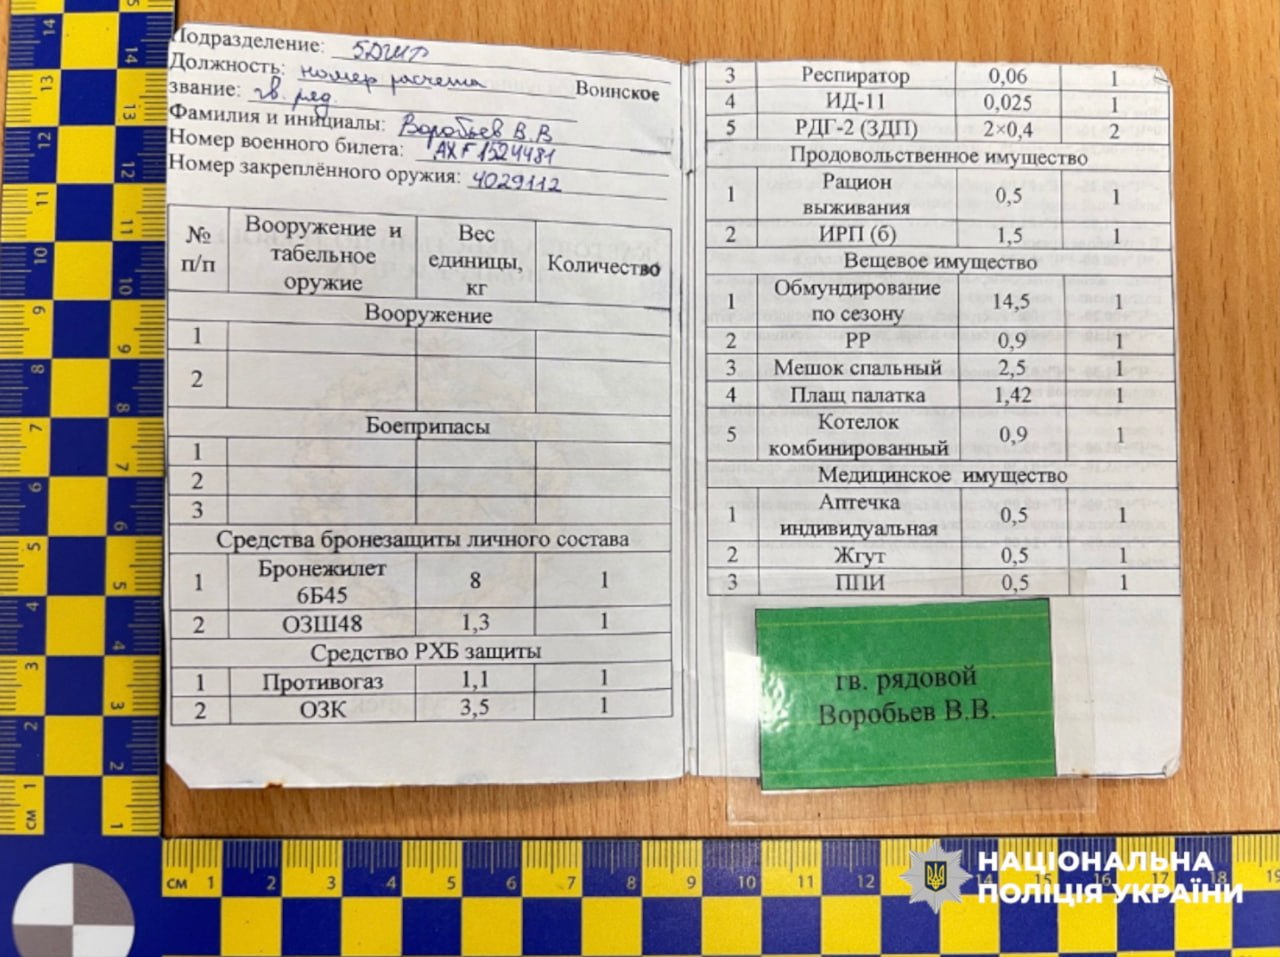 Подразделение: 5ДШР
Должность: номер расчета Воинское
звание: гв. ряд.
Фамилия и инициалы: Воробьев В.В
Номер военного билета: АХГ1524481
Номер закреплённого оружия: 4029112
№ п/п Вооружение и табельное оружие Вес единицы, кг Количество
Вооружение
1
2
Боеприпасы
1
2
3
Средства бронезащиты личного состава
1 Бронежилет 6Б45 8 1
2 ОЗШ48 1,3 1
Средство РХБ защиты
1 Противогаз 1,1 1
2 ОЗК 3,5 1
3 Респиратор 0,06 1
4 ИД-11 0,025 1
5 РДГ-2 (ЗДП) 2×0,4 2
Продовольственное имущество
1 Рацион выживания 0,5 1
2 ИРП (б) 1,5 1
Вещевое имущество
1 Обмундирование по сезону 14,5 1
2 РР 0,9 1
3 Мешок спальный 2,5 1
4 Плащ палатка 1,42 1
5 Котелок комбинированный 0,9 1
Медицинское имущество
1 Аптечка индивидуальная 0,5 1
2 Жгут 0,5 1
3 ППИ 0,5 1
гв. рядовой
Воробьев В.В.
НАЦІОНАЛЬНА
ПОЛІЦІЯ УКРАЇНИ